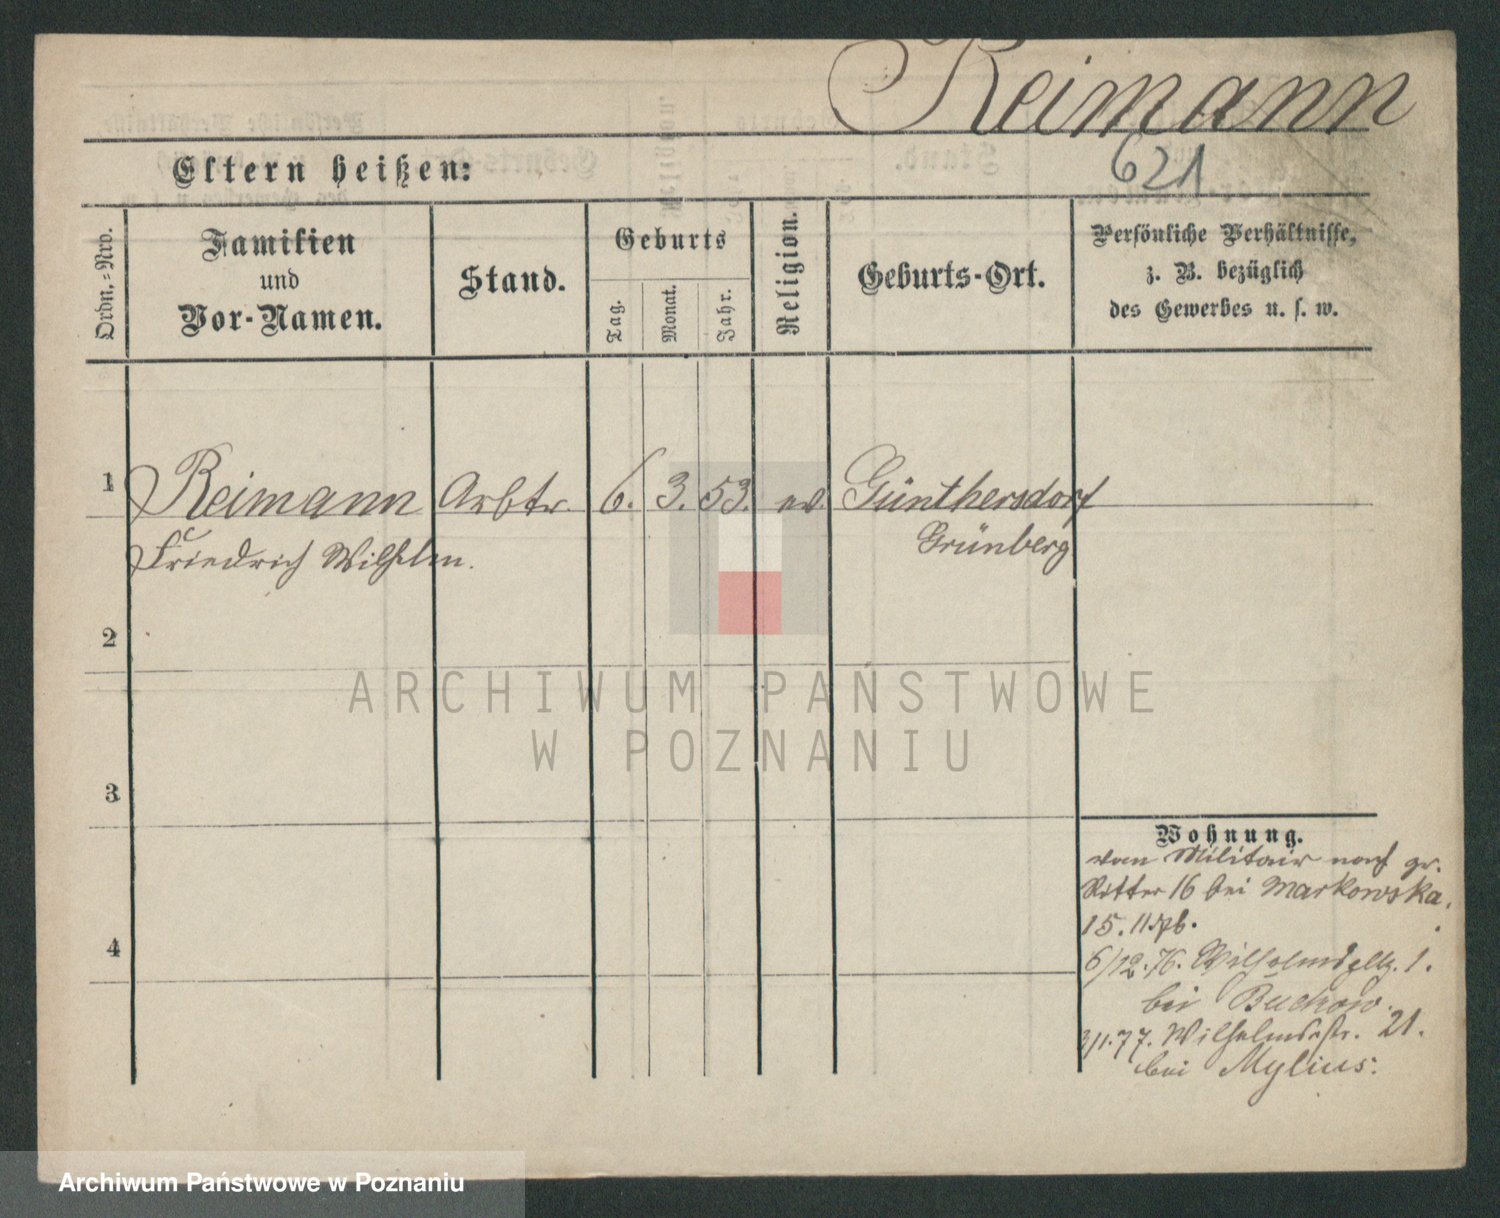 Reimann
621
Eltern heißen:
Ordn.-Nro.
Familien
und
Vor-Namen.
Stand.
Geburts
Tag.
Monat.
Jahr.
Religion.
Geburts-Ort.
Persönliche Verhältnisse,
z. B. bezüglich
des Gewerbes u. s. w.
1 Reimann Arbtr. 6. 3. 53. ev. Günthersdorf
Friedrich Wilhelm. Grünberg
2
3
4
Wohnung.
vom Militair nach gr.
Ritter 16 bei Markowska.
15. 11
6/12. 76. Wilhelmspltz. 1.
bei Buckow.
3/1. 77. Wilhelmsstr. 21.
bei Mylius.
ARCHIWUM PAŃSTWOWE
W POZNANIU
Archiwum Państwowe w Poznaniu